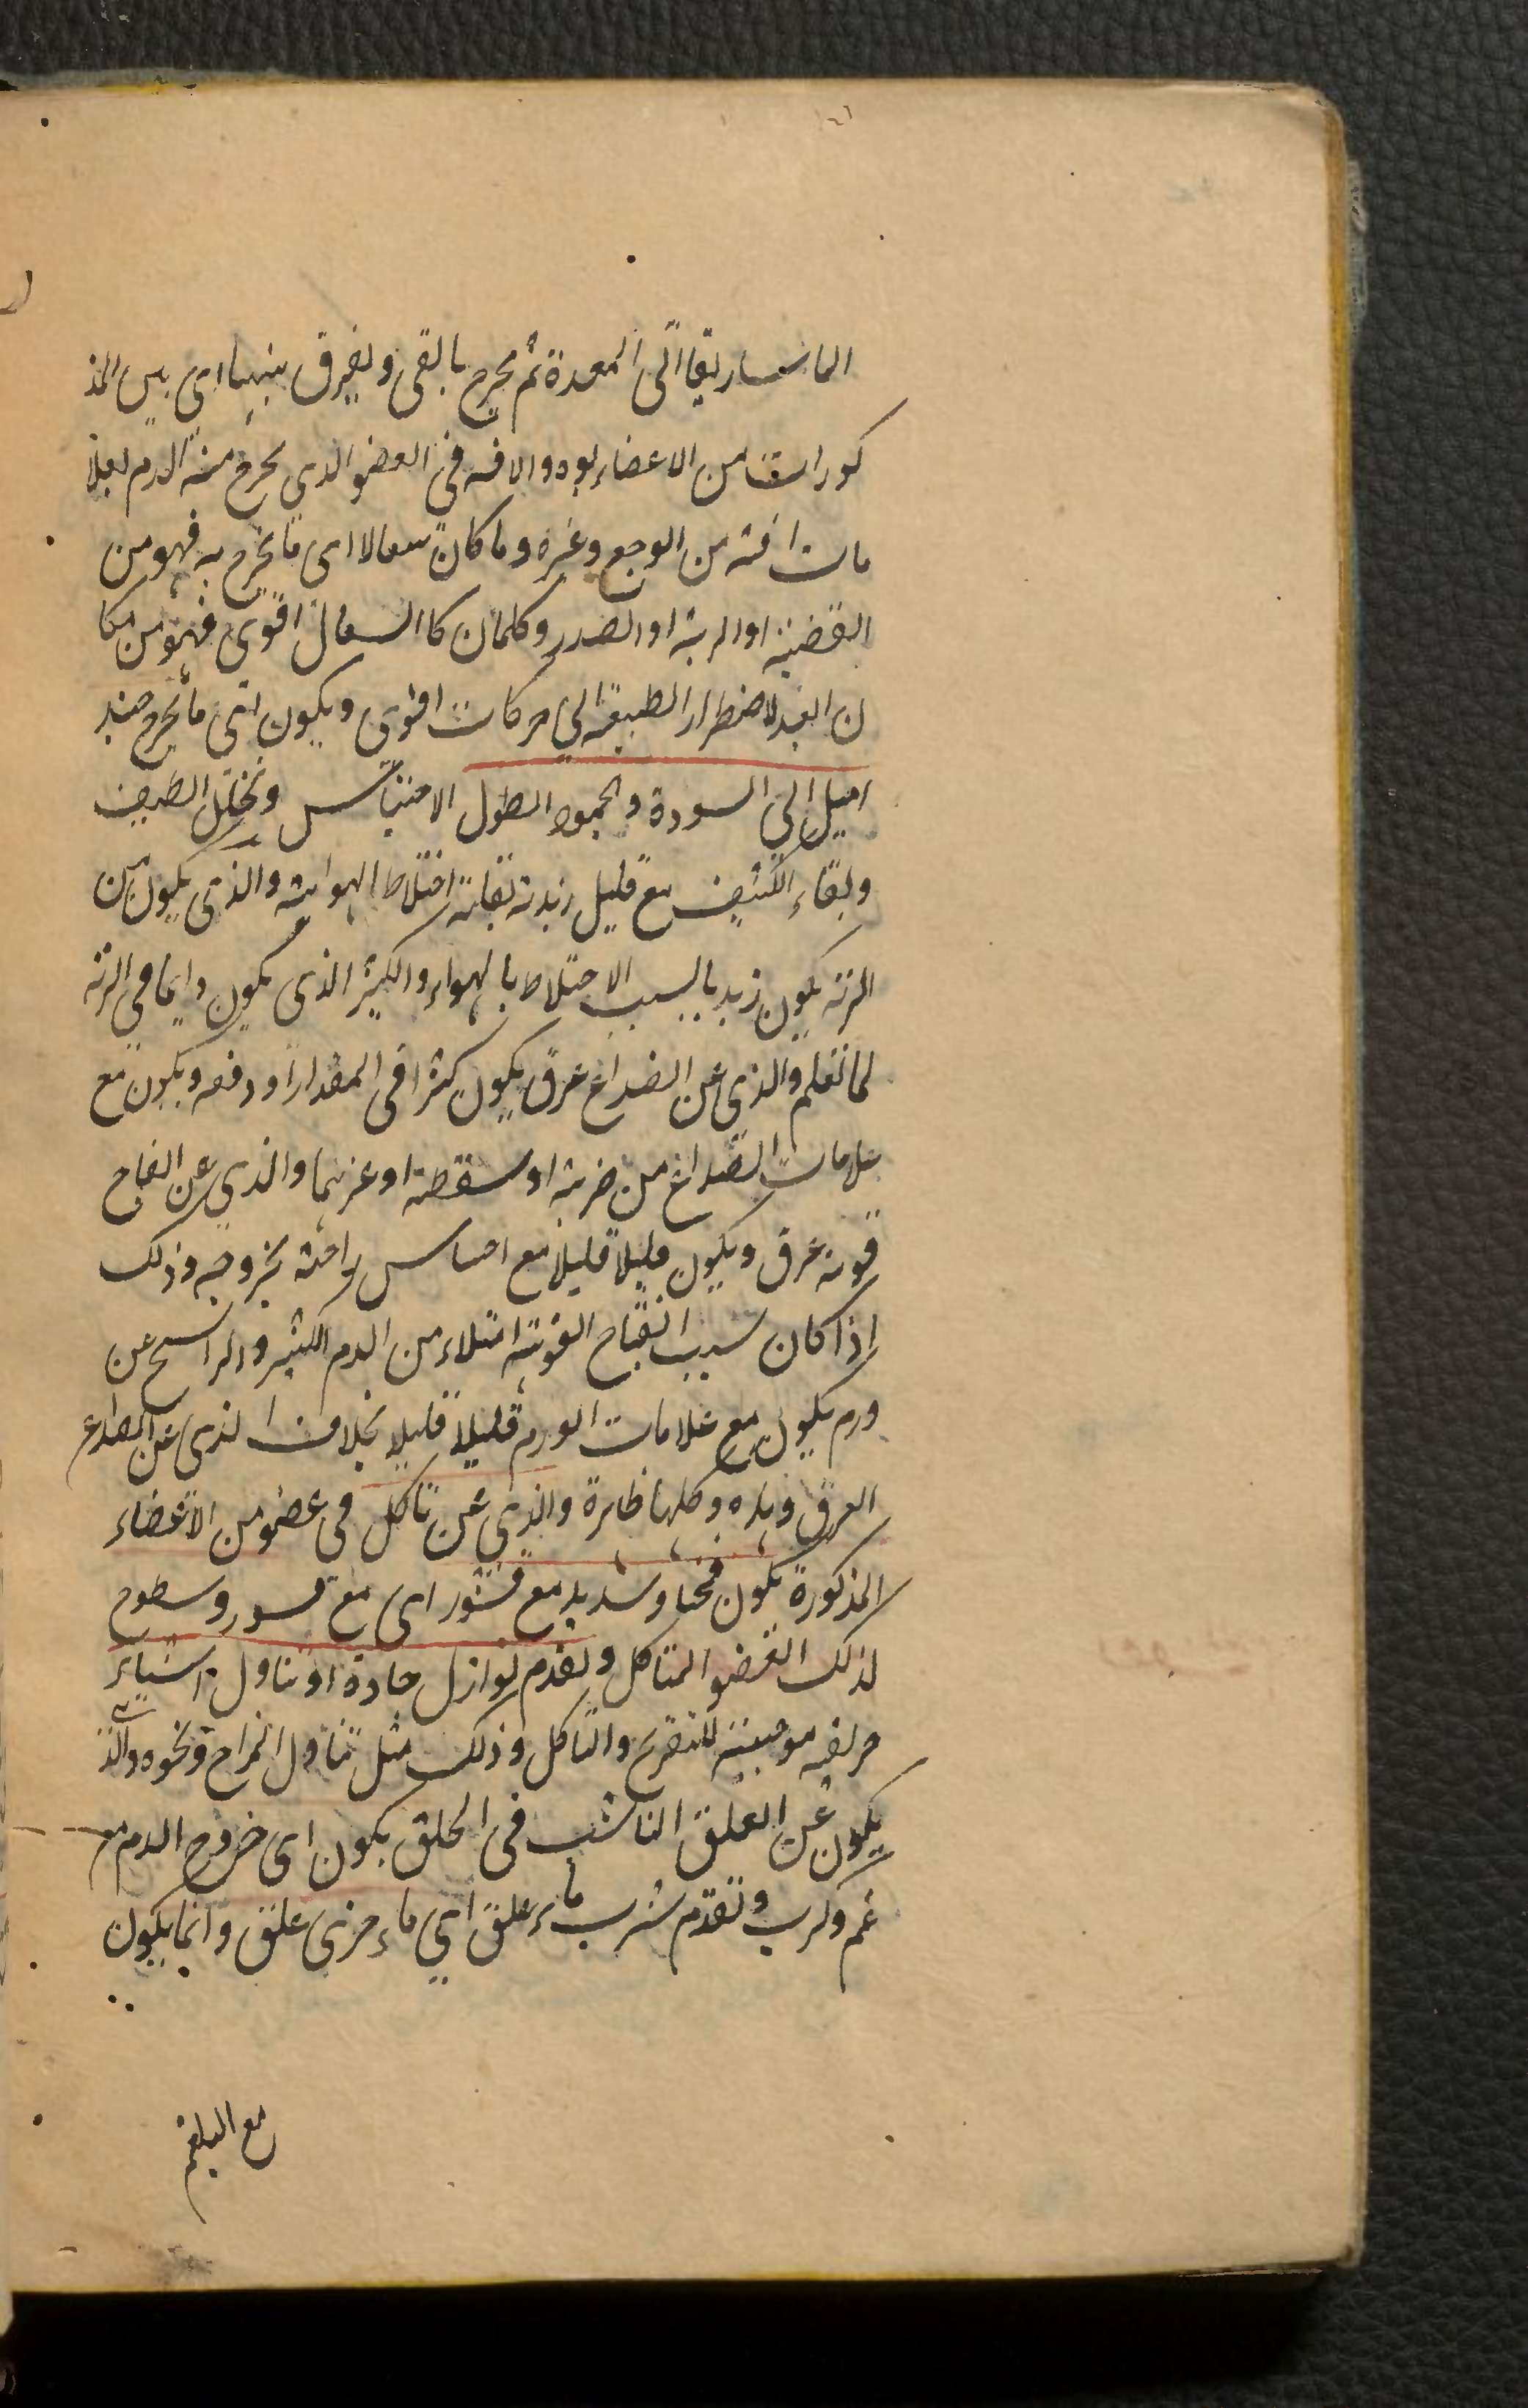 الماساريقا الى المعدة ثم يخرج بالقى ويفرق بينها اى بين المذ
كورات من الاعضاء بوه والافه فى العضو الذى يخرج منه الدم بعلا
مات افته من الوجع وغيره وما كان سعالا اى ما يخرج به فهو من
القصبة او الرية او الصدر وكلمان كا السعال اقوى فهو من مكا
ن ابعد لاضطرار الطبيعة الى حركات اقوى ويكون اى ما يخرج منه
اميل الى السودة والجمود لطول الاحتباس وتحلل اللطيف
وبقاء الكثيف مع قليل زبدية اختلاط الهوائية والذى يكون من
الرئه يكون زبديا لسبب الاختلاط بالهواء والكثير الذى يكون دايما فى الرئه
لما تعلم والذى عن انصداع عرق يكون كثيرا فى المقدار او دفعه ويكون مع
علامات الصداع من ضربة او سقطة او غيرهما والذى عن انفتاح
فوهة عرق ويكون قليلا قليلا مع احساس راحة بخروجه وذلك
اذا كان سبب انفتاح الفوهة امتلاء من الدم الكثير والراشح عن
ورم يكون مع علامات الورم قليلا قليلا بخلاف الذى عن انصداع
العرق وهذه وكلها ظاهرة والذى عن تاكل فى عضو من الاعضاء
المذكورة يكون وشديد مع قشور اى مع قسور وسطوح
لذلك العضو المتاكل وتقدم نوازل حادة او تناول اشياء
حريفه موجبة للتقريح والتاكل وذلك مثل تناول ونحوه والذى
يكون عن العلق الناشب فى الحلق يكون اى خروج الدم مع
غم وكرب وتقدم شرب ماء علق اى ماء ذى علق وانما يكون
مع البلغم